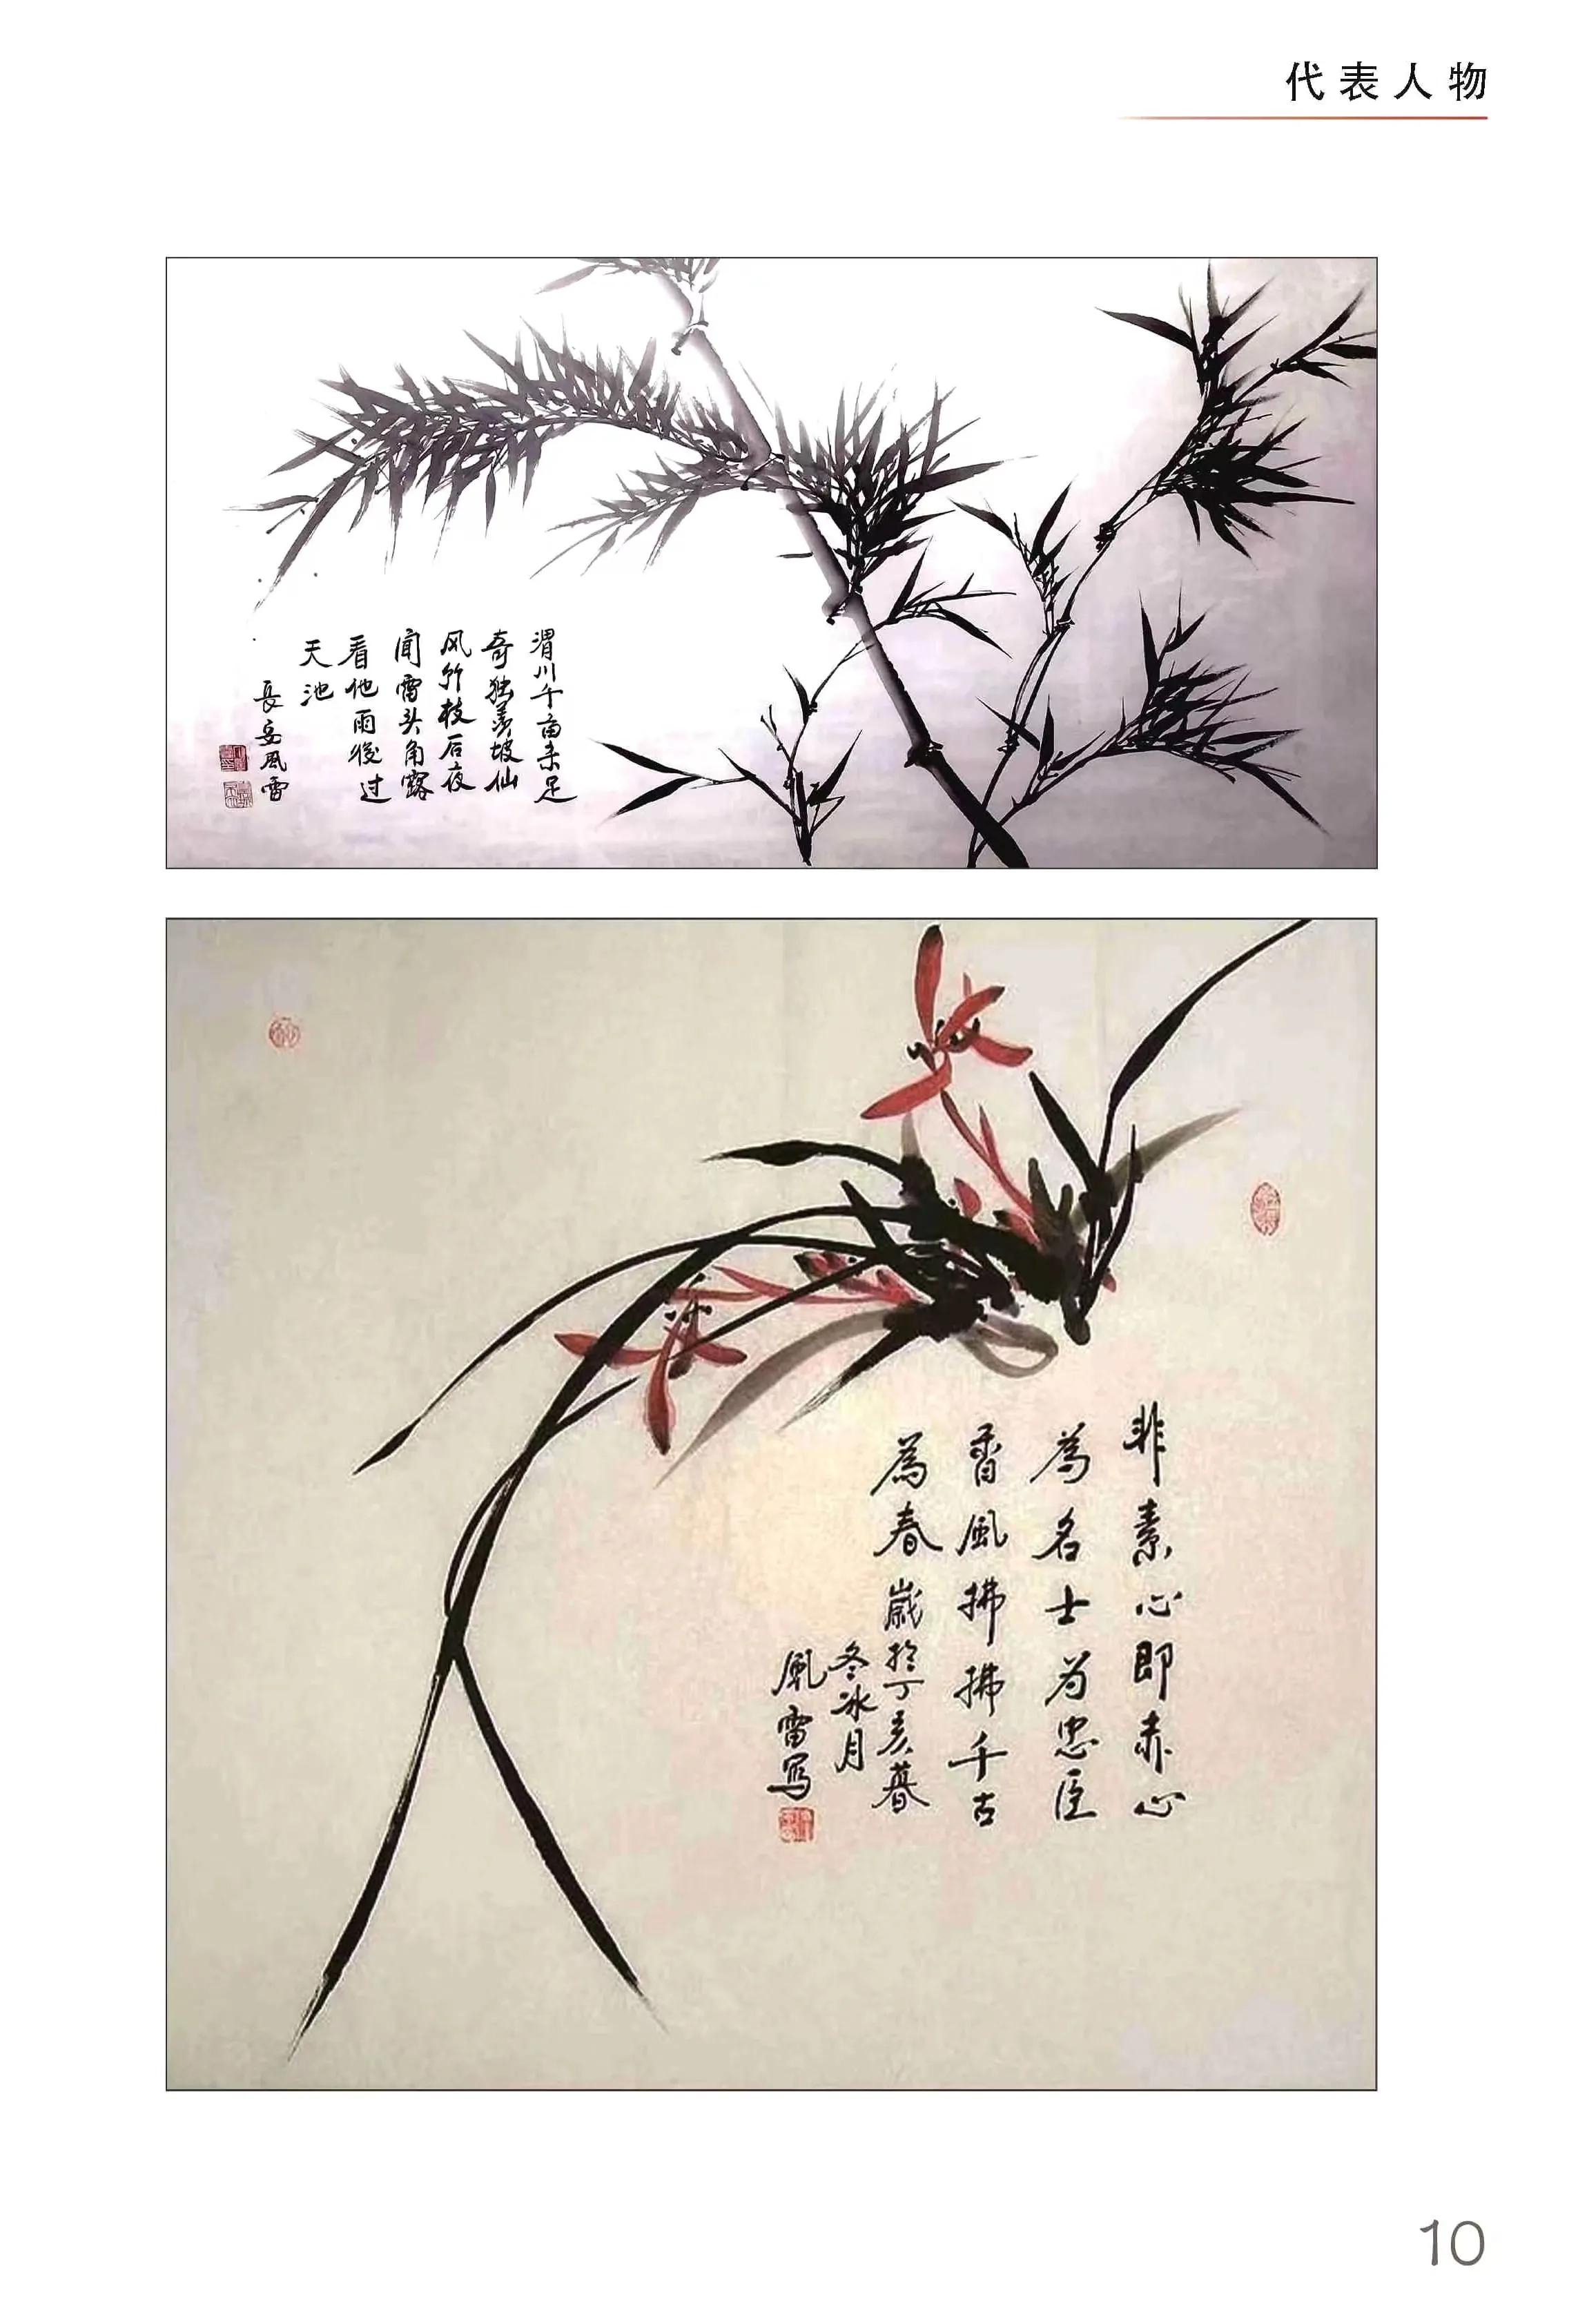 代表人物
渭川千亩未足
奇独羡坡仙
风竹枝后夜
闻雷头角露
看他雨後过
天池
長岳風雷
非素心即赤心
為名士为忠臣
香風拂拂千古
為春歲於丁亥暮
冬冰月
風雷寫
10